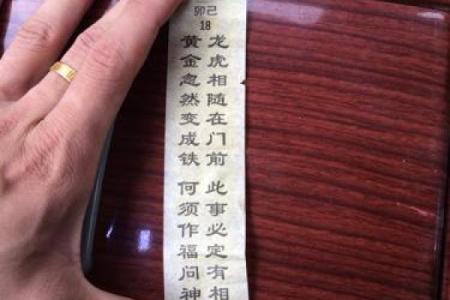 己卯
18
龙虎相随在门前 此事必定有相
黄金忽然变成铁 何须作福问神